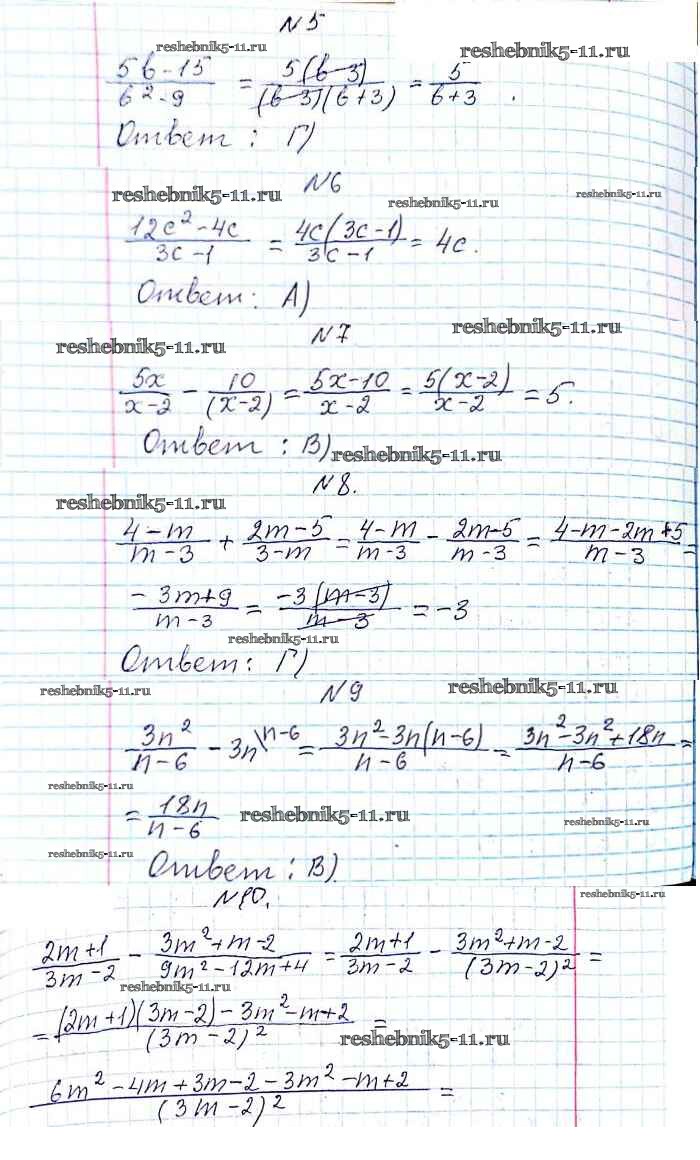 №5
reshebnik5-11.ru
reshebnik5-11.ru
5b-15/b²-9 = 5(b-3)/(b-3)(b+3) = 5/b+3.
Ответ: Г)
№6
reshebnik5-11.ru
reshebnik5-11.ru
reshebnik5-11.ru
12c²-4c/3c-1 = 4c(3c-1)/3c-1 = 4c.
Ответ: А)
№7
reshebnik5-11.ru
reshebnik5-11.ru
5x/x-2 - 10/(x-2) = 5x-10/x-2 = 5(x-2)/x-2 = 5.
Ответ: В)
reshebnik5-11.ru
№8.
reshebnik5-11.ru
4-m/m-3 + 2m-5/3-m = 4-m/m-3 - 2m-5/m-3 = 4-m-2m+5/m-3 =
-3m+9/m-3 = -3(m-3)/m-3 = -3
reshebnik5-11.ru
Ответ: Г)
№9
reshebnik5-11.ru
reshebnik5-11.ru
3n²/n-6 - 3n\n-6 = 3n²-3n(n-6)/n-6 = 3n²-3n²+18n/n-6 =
reshebnik5-11.ru
= 18n/n-6
reshebnik5-11.ru
reshebnik5-11.ru
reshebnik5-11.ru
Ответ: В)
№10.
reshebnik5-11.ru
2m+1/3m-2 - 3m²+m-2/9m²-12m+4 = 2m+1/3m-2 - 3m²+m-2/(3m-2)² =
reshebnik5-11.ru
= (2m+1)(3m-2)-3m²-m+2/(3m-2)² =
reshebnik5-11.ru
6m²-4m+3m-2-3m²-m+2/(3m-2)² =